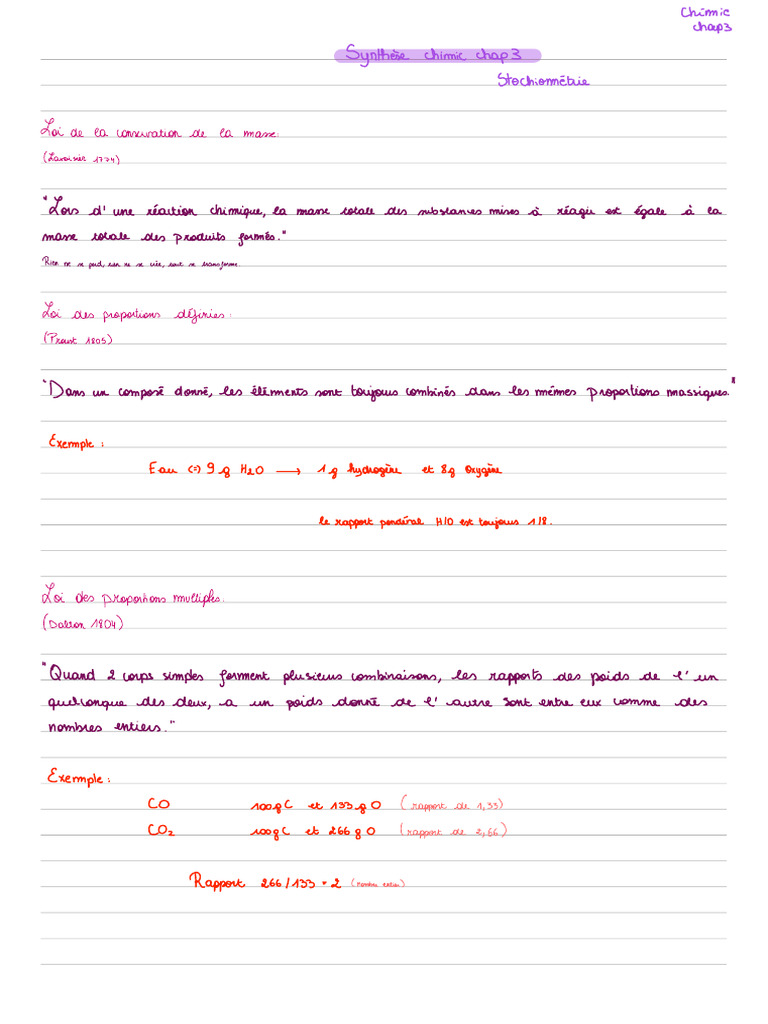 Chimie
chap3
Synthèse chimie chap3
Stochiométrie
Loi de la conservation de la masse:
(Lavoisier 1774)
"Lors d'une réaction chimique, la masse totale des substances mises à réagir est égale à la
masse totale des produits formés."
Rien ne se perd, rien ne se crée, tout se transforme.
Loi des proportions définies:
(Proust 1805)
"Dans un composé donné, les éléments sont toujours combinés dans les mêmes proportions massiques."
Exemple:
Eau (=) 9g H2O → 1g hydrogène et 8g oxygène
le rapport pondéral H/O est toujours 1/8.
Loi des proportions multiples:
(Dalton 1804)
"Quand 2 corps simples forment plusieurs combinaisons, les rapports des poids de l'un
quelconque des deux, a un poids donné de l'autre sont entre eux comme des
nombres entiers."
Exemple:
CO 100g C et 133g O (rapport de 1,33)
CO2 100g C et 266g O (rapport de 2,66)
Rapport 266/133 = 2 (nombre entier)